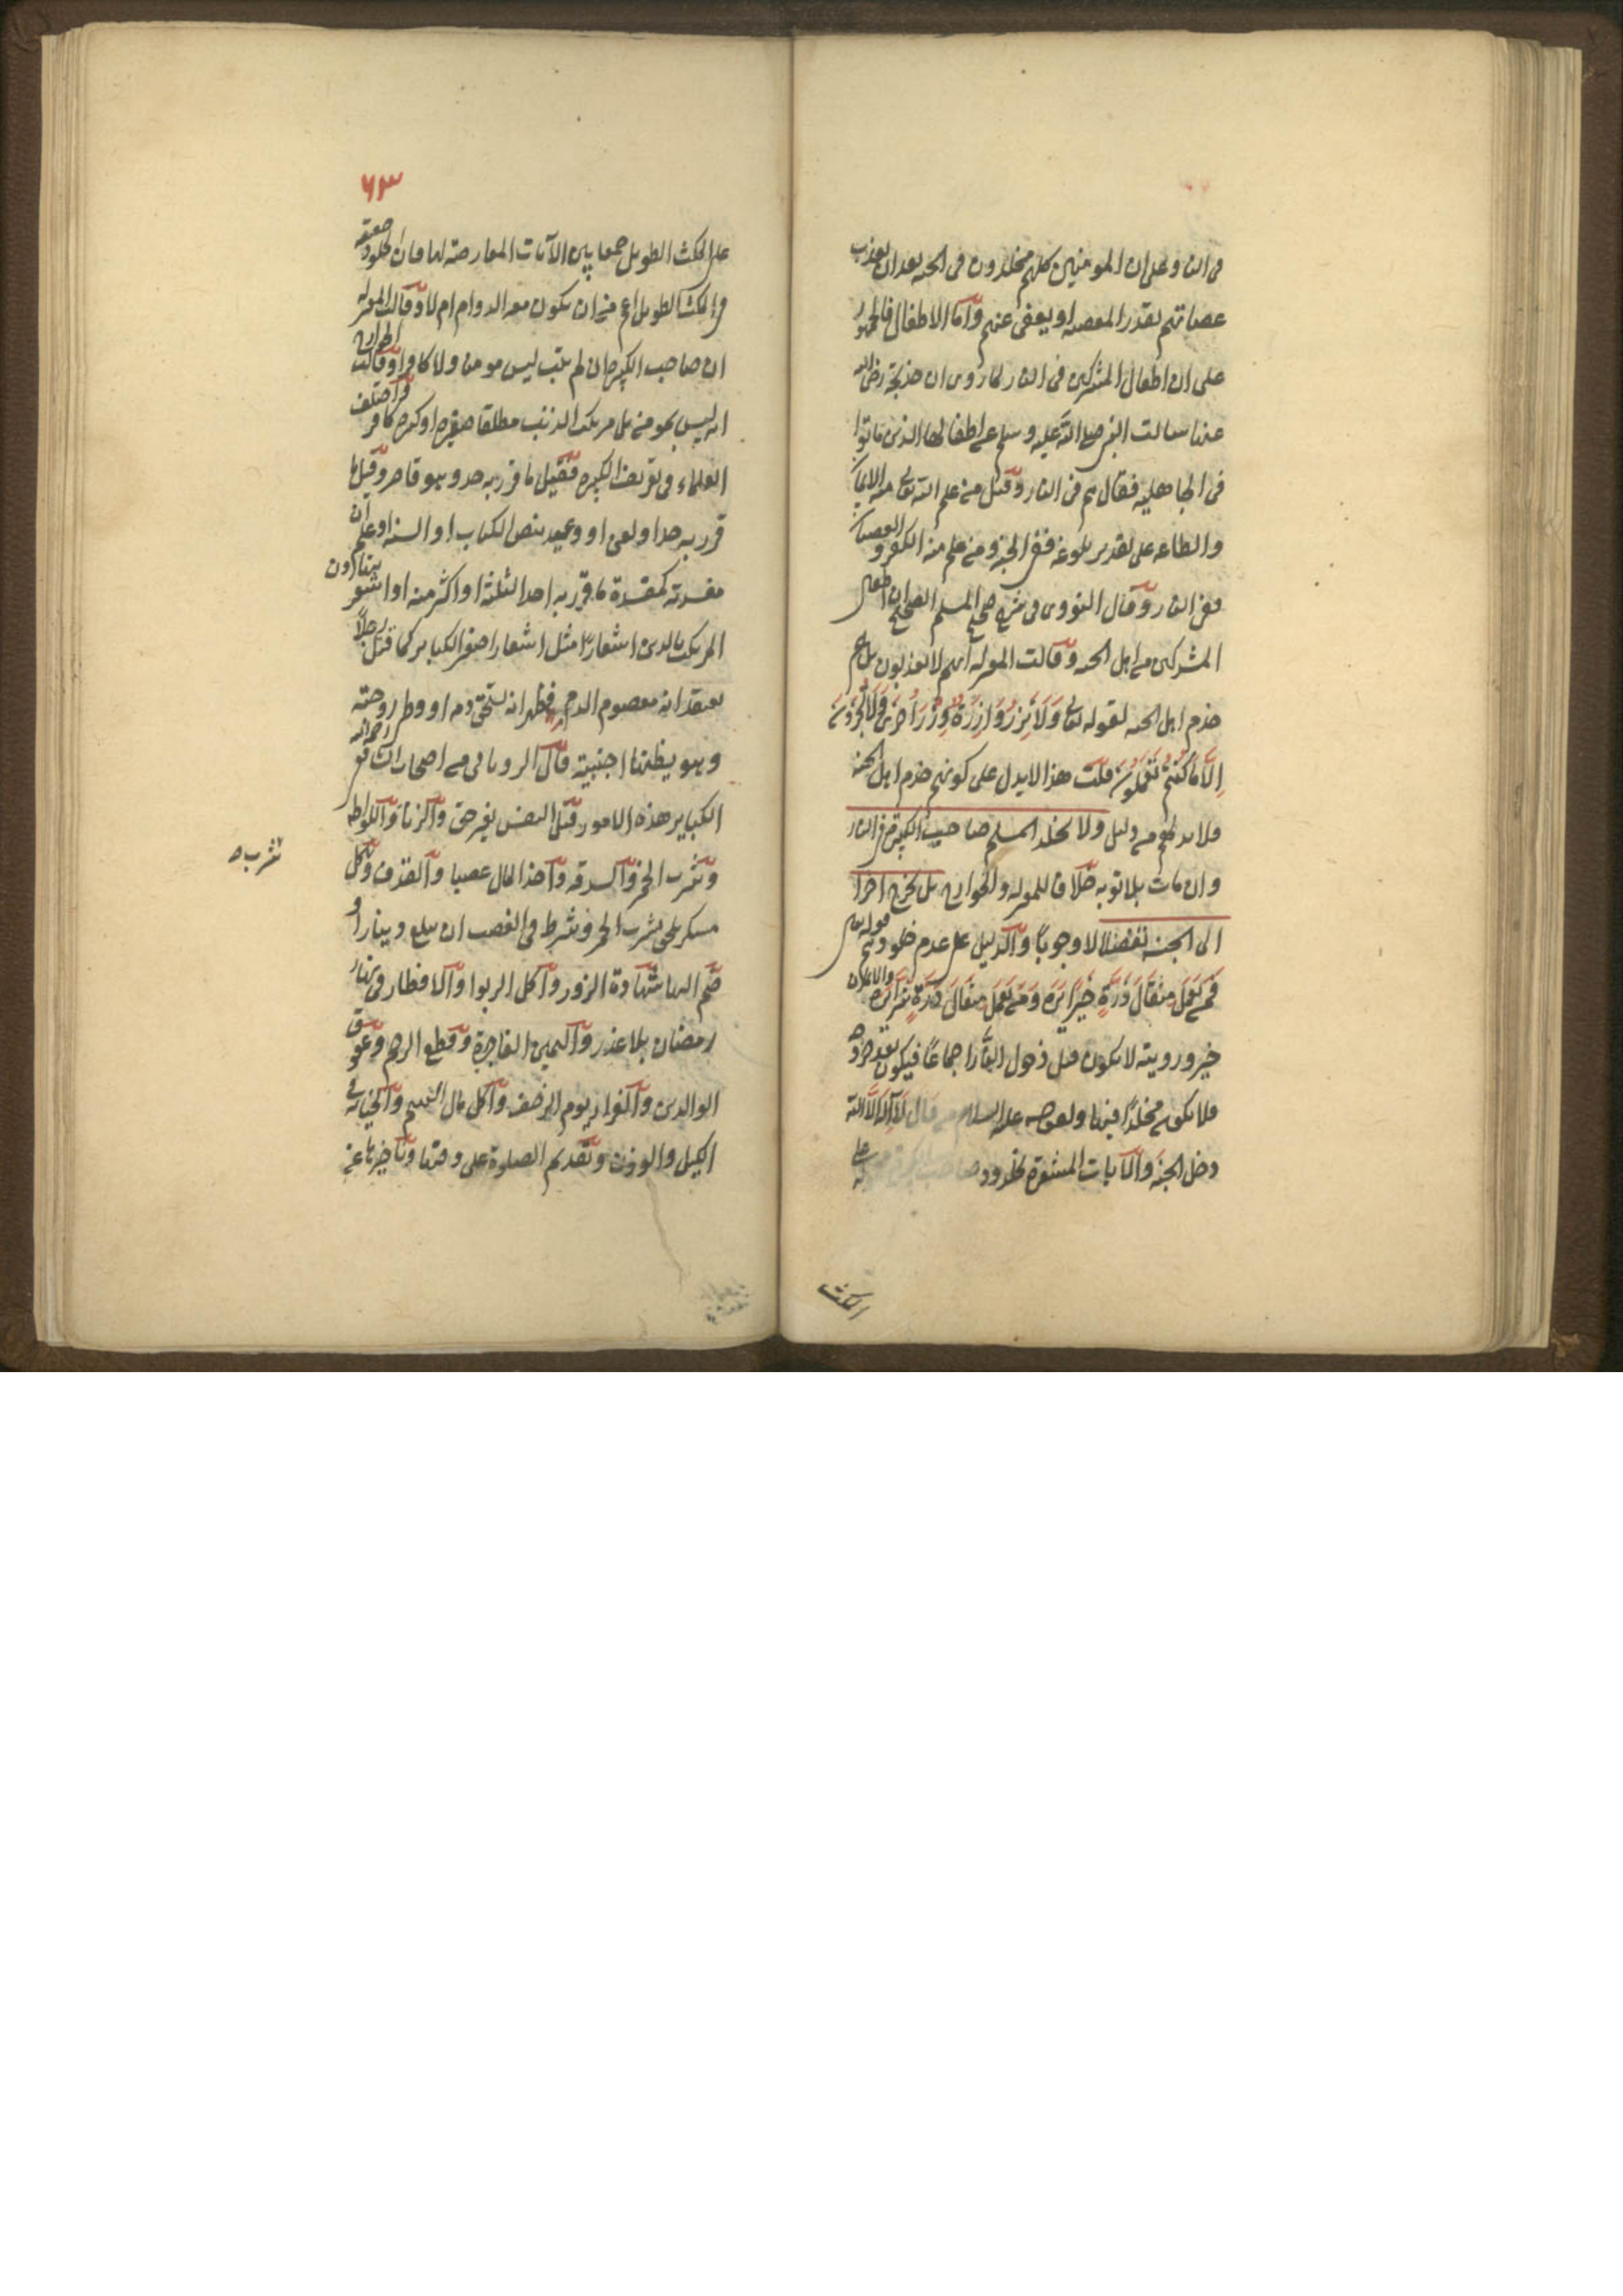 فى النار وعلى ان المومنين كلهم مخلدون فى الجنه بعد ان يعذب
عصاتهم بقدر المعصيه او يعفى عنهم وأما الاطفال فالجمهور
على ان اطفال المشركين فى النار لما روى ان خديجة رضى الله
عنها سالت النبى صلى الله عليه وسلم عن اطفالها الذين ماتوا
فى الجاهليه فقال هم فى النار وقيل من علم الله تعالى منه الايمان
والطاعه على تقدير بلوغه ففى الجنة ومن علم منه الكفر والعصيان
ففى النار وقال النووى فى شرح صحيح المسلم الصحيح ان اطفال
المشركين من اهل الجنه وقالت المعتزله انهم لا يعذبون بل هم
خدم اهل الجنه لقوله تعالى وَلَا تَزِرُ وَازِرَةٌ وِزْرَ أُخْرَى وَلَا تُجْزَوْنَ
إِلَّا مَا كُنْتُمْ تَعْمَلُونَ قلت هذا لا يدل على كونهم خدم اهل الجنه
فلا بد لهم من دليل ولا يخلد المسلم صاحب الكبيرة فى النار
وان مات بلا توبه خلافا للمعتزله والخوارج بل يخرج اخرا
الى الجنه تفضلا لا وجوبًا والدليل على عدم خلودهم قوله تعالى
فَمَنْ يَعْمَلْ مِثْقَالَ ذَرَّةٍ خَيْرًا يَرَهُ وَمَنْ يَعْمَلْ مِثْقَالَ ذَرَّةٍ شَرًّا يَرَهُ والايمان
خير ورويته لا يكون قبل دخول النار اجماعًا فيكون بعد خروجه
فلا يكون مخلدًا فيها ولقوله عليه السلام من قال لَا إِلَهَ إِلَّا الله
دخل الجنة والآيات المشعرة بخلود صاحب الكبيرة على
المكث
٦٣
على المكث الطويل جمعا بين الآيات المعارضة لها فان الخلود حقيقة
فى المكث الطويل اعم من ان يكون معه الدوام ام لا وقالت المعتزله
ان صاحب الكبيره ان لم يتب ليس مومنا ولا كافرا وقالت الخوارج
انه ليس بمومن بل مرتكب الذنب مطلقا صغيره او كبيره كافر واختلف
العلماء فى تعريف الكبيره فقيل ما قرر به حد وهو قاصر وقيل ما
قرر به حد او لعن او وعيد بنص الكتاب او السنه او علم ان
مفسدته كمفسدة ما قرر به احد الثلثة او اكثر منه او اشعر بتهاون
المرتكب بالدين اشعارا مثل اشعار اصغر الكباير كما قتل رجلًا
يعتقد انه معصوم الدم فظهر انه يستحق دمه او وطى زوجته
وهو يظنها اجنبية قال الرويانى من اصحاب الشافعى رحمه الله
الكباير هذه الامور قتل النفس بغير حق والزنا واللواطه
وشرب الخمر والسرقه واخذ المال غصبا والقذف وكل
شرب ٥
مسكر يلحق بشرب الخمر وشرط فى الغصب ان يبلغ دينارا و
ضم اليها شهادة الزور واكل الربوا والافطار فى نهار
رمضان بلا عذر واليمين الفاجرة وقطع الرحم وعقوق
الوالدين والفرار يوم الزحف واكل مال اليتيم والخيانة فى
الكيل والوزن وتقديم الصلوة على وقتها وتاخيرها عن